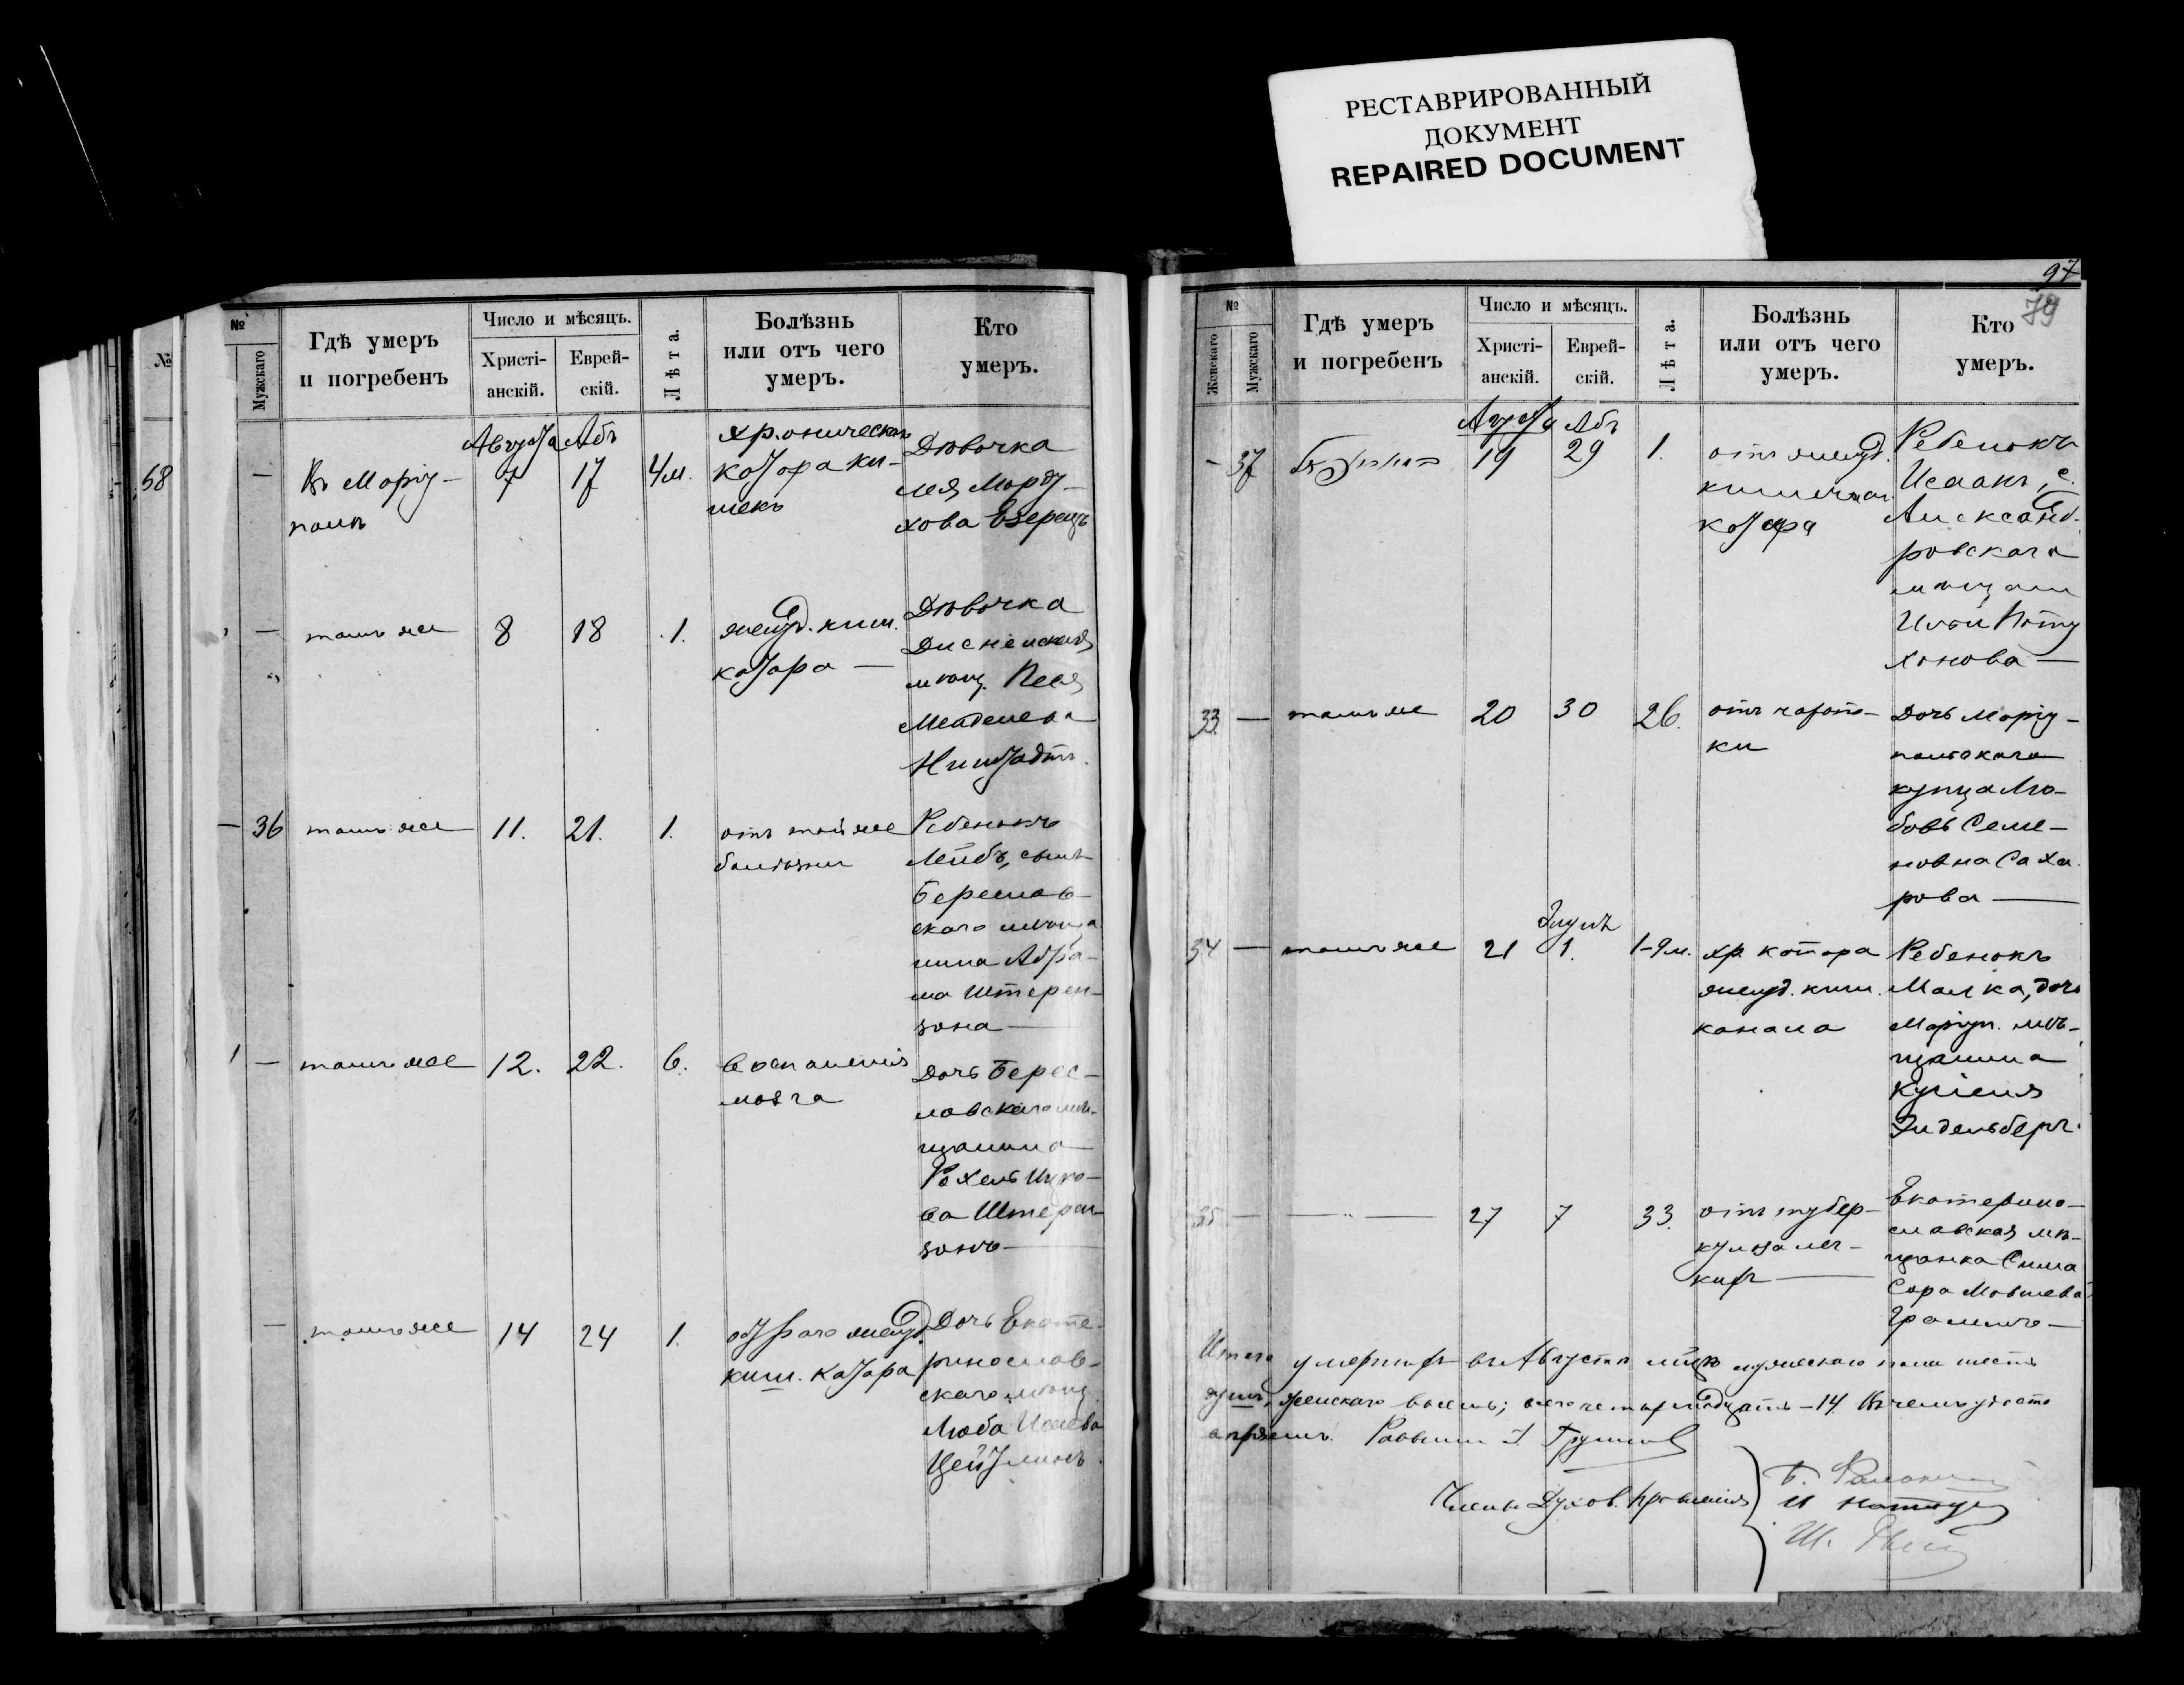 РЕСТАВРИРОВАННЫЙ
ДОКУМЕНТ
REPAIRED DOCUMENT
№
№
Мужскаго
Гдѣ умеръ
и погребенъ
Число и мѣсяцъ.
Христі-
анскій.
Еврей-
скій.
Лѣта.
Болѣзнь
или отъ чего
умеръ.
Кто
умеръ.
58
—
Въ Маріу-
полѣ
Августа
7
Абъ
17
4 м.
хроническаго
катара ки-
шекъ
Дѣвочка
Лея Морду-
хова Озерецъ
—
тамъ же
8
18
1.
желуд. киш.
катара —
Дѣвочка
Дисненская
мѣщ. Песя
Менделева
—
36
тамъ же
11.
21.
1.
отъ той же
болѣзни
Ребенокъ
Лейбъ, сынъ
Береслав-
скаго мѣща
нина Абра-
ма Штерен-
зона —
1
—
тамъ же
12.
22.
6.
воспаленія
мозга
Дочь Берес-
лавскаго мѣ-
щанина
Рохель Ицко-
ва Штерен-
зонъ —
—
тамъ же
14
24
1.
остраго желуд.
киш. катара
Дочь Екате-
ринослав-
скаго мѣщ.
Люба
97
79
№
Женскаго
Мужскаго
Гдѣ умеръ
и погребенъ
Число и мѣсяцъ.
Христі-
анскій.
Еврей-
скій.
Лѣта.
Болѣзнь
или отъ чего
умеръ.
Кто
умеръ.
—
37
Августа
19
Абъ
29
1.
отъ желуд.
кишечнаго
катара
Ребенокъ
Исаакъ, с.
Александ-
ровскаго
мѣщан
33.
—
тамъ же
20
30
26.
отъ чахот-
ки
Дочь Маріу-
польскаго
купца Лю-
бовь Семе-
новна Саха
рова —
34
—
тамъ же
21
Элулъ
1.
1-9 м.
хр. катара
желуд. киш.
канала
Ребенокъ
Малка, дочь
Маріуп. мѣ-
щанина
Кусіеля
Эйдельберг.
35
—
— " —
27
7
33.
отъ тубер-
кулоза лег-
кихъ —
Екатерино-
славская мѣ-
щанка Сима
Сора Мовшева
Итого умершихъ въ Августѣ мцѣ мужескаго пола шесть
душъ, женскаго восемь; всего четырнадцать — 14. Въ чемъ удосто
вѣряемъ. Раввинъ
Члены Духов. Правленія